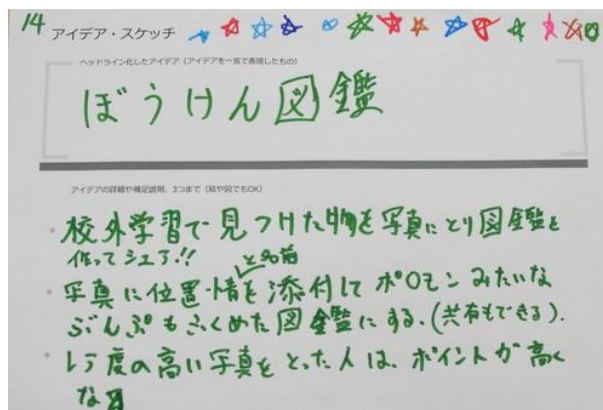 14
アイデア・スケッチ
ヘッドライン化したアイデア（アイデアを一言で表現したもの）
ぼうけん図鑑
アイデアの詳細や補足説明、3つまで（絵や図でもOK）
・校外学習で見つけた物を写真にとり図鑑を
作ってシェア!!
と名前
・写真に位置情を添付してポ○モンみたいな
ぶんぷもふくめた図鑑にする。(共有もできる).
・レア度の高い写真をとった人は、ポイントが高く
な